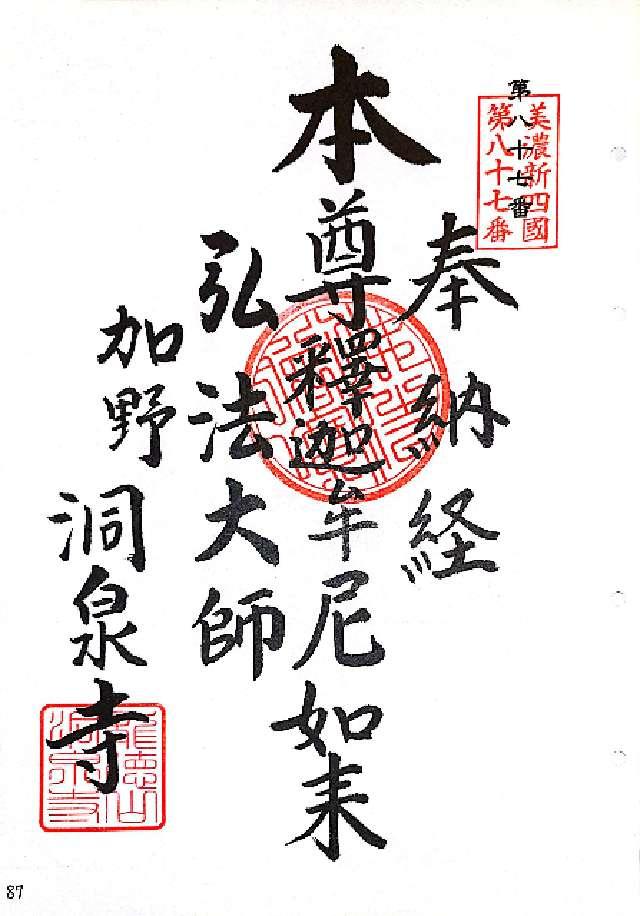 第八十七番
美濃新四國
第八十七番
奉納経
本尊釋迦牟尼如来
弘法大師
加野洞泉寺
龍徳山
洞泉寺
87